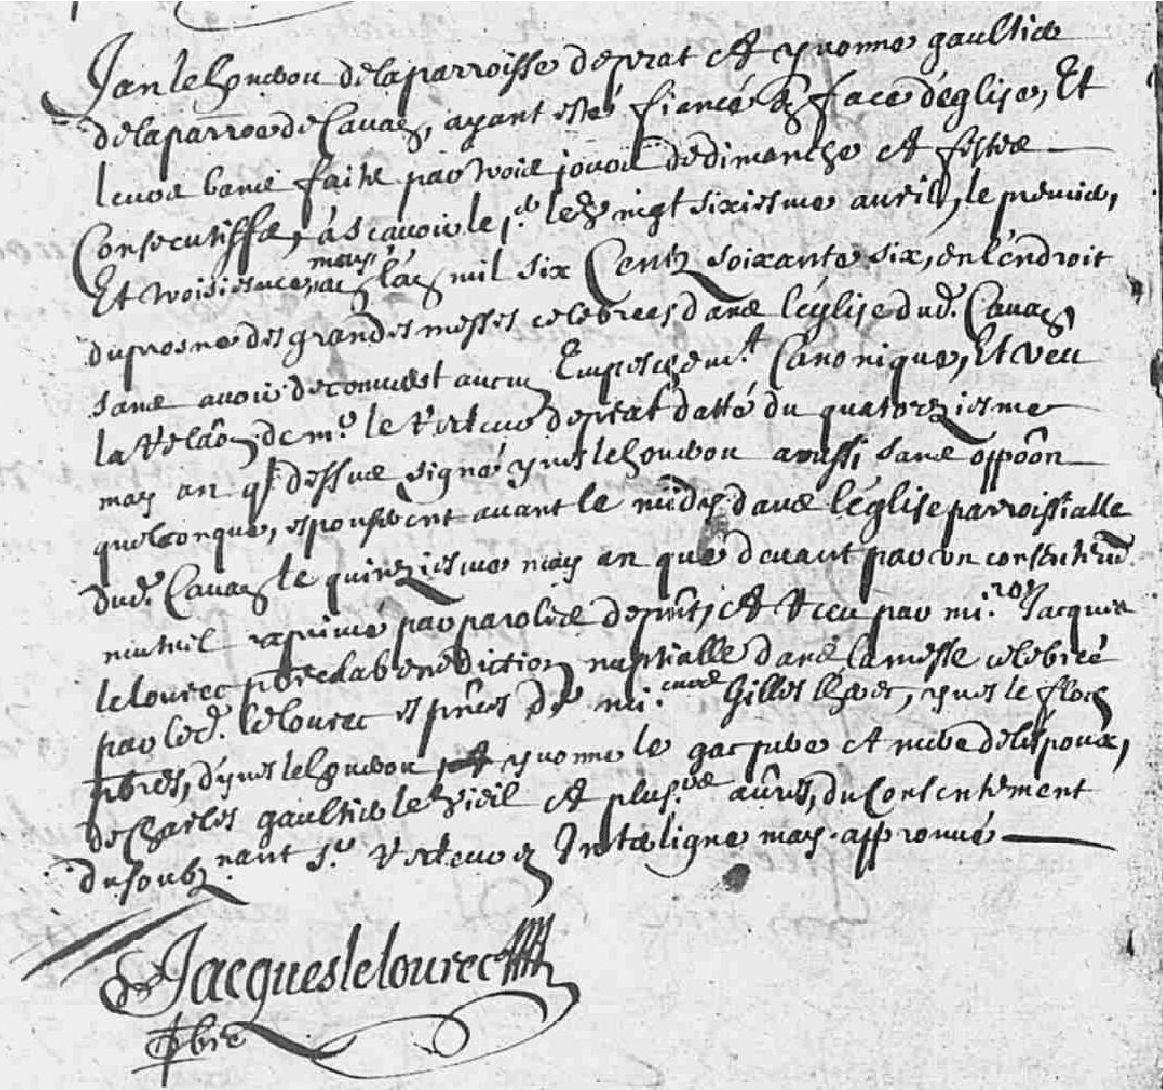 Jan le houdou de la parroisse de prat et yvonne gaultier
de la parroe de Cavan, ayant esté fiancé en face d'église, Et
leurs bans faits par trois jours de dimanche et festes
Consecutiffs, à scavoir le p.er le vingt sixiesme avril, le premier,
Et troisiesme may l'an mil six Centz soixante six, en l'endroit
du prosne des grandes messes celebrees dans l'église dud. Cavan
sans avoir decouvert aucun Empeschem.t Canonique, Et veu
la Relaôn de m.e le Recteur de prat datté du quatorziesme
may an q dessus signé yves le houdou aussi sans oppôon
quelconque, espousèrent avant le midy dans l'église parroissialle
dud. Cavan le quinziesme may an que devant par un consentem.
mutuel exprimé par parolles de pnt, et Receu par mi.re Jacques
le lourec pbre la benediction nuptialle dans la messe celebreé
par led. le lourec es pnces de mi. Gilles, yves le floch
pbres, d'yves le houdou yvonne le gac pere et mere de l'époux,
de Charles gaultier le vieil et plus.rs aûres, du Consentement
du soubz nant s.r Recteur en Interligne may approuvé
Jacques le lourec
pbre